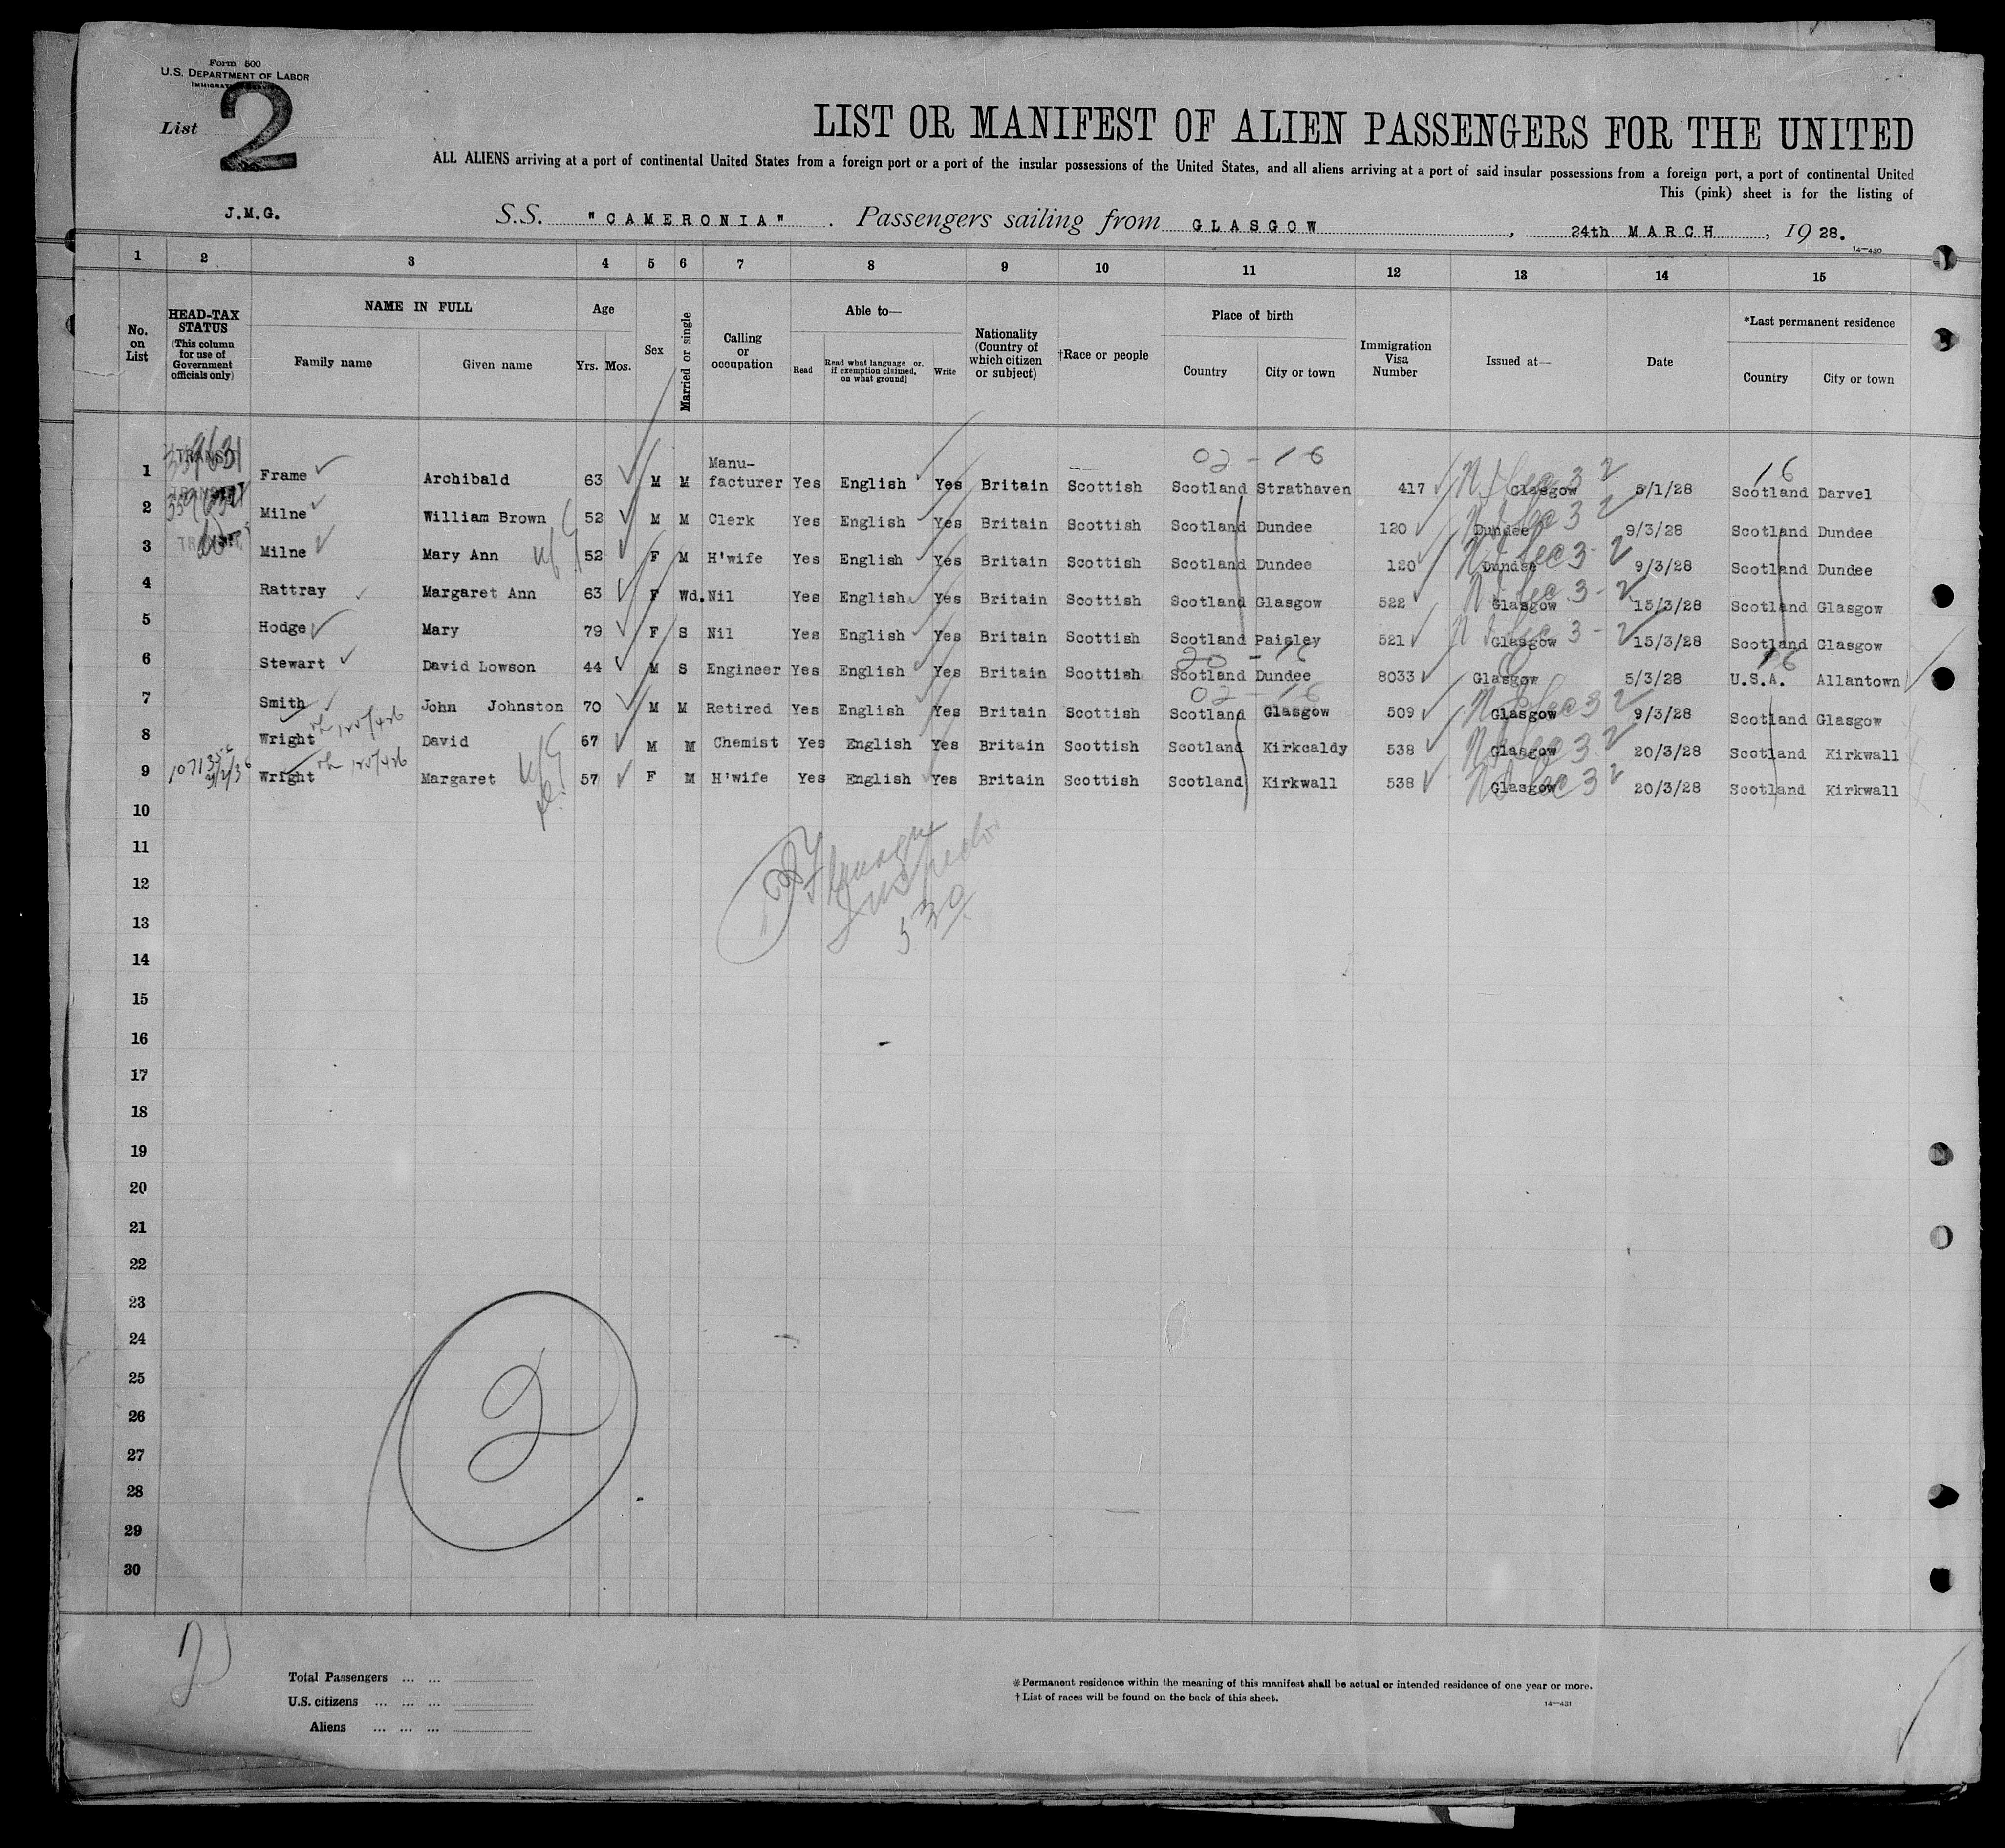 Form 500
U.S. DEPARTMENT OF LABOR
List 2
LIST OR MANIFEST OF ALIEN PASSENGERS FOR THE UNITED
ALL ALIENS arriving at a port of continental United States from a foreign port or a port of the insular possessions of the United States, and all aliens arriving at a port of said insular possessions from a foreign port, a port of continental United
This (pink) sheet is for the listing of
J.M.G.
S.S. "CAMERONIA". Passengers sailing from GLASGOW, 24th MARCH, 1928.
14—430
1 2 3 4 5 6 7 8 9 10 11 12 13 14 15
No. on List
HEAD-TAX STATUS (This column for use of Government officials only)
NAME IN FULL
Family name Given name
Age
Yrs. Mos.
Sex
Married or single
Calling or occupation
Able to—
Read
Read what language or, if exemption claimed, on what ground]
Write
Nationality (Country of which citizen or subject)
†Race or people
Place of birth
Country City or town
Immigration Visa Number
Issued at—
Date
*Last permanent residence
Country City or town
02 - 16
1 TRANSIT Frame Archibald 63 M M Manu-facturer Yes English Yes Britain Scottish Scotland Strathaven 417 Glasgow 5/1/28 Scotland Darvel
16
2 TRANSIT Milne William Brown 52 M M Clerk Yes English Yes Britain Scottish Scotland Dundee 120 Dundee 9/3/28 Scotland Dundee
3 TRANSIT Milne Mary Ann 52 F M H'wife Yes English Yes Britain Scottish Scotland Dundee 120 Dundee 9/3/28 Scotland Dundee
4 Rattray Margaret Ann 63 F Wd. Nil Yes English Yes Britain Scottish Scotland Glasgow 522 Glasgow 15/3/28 Scotland Glasgow
5 Hodge Mary 79 F S Nil Yes English Yes Britain Scottish Scotland Paisley 521 Glasgow 15/3/28 Scotland Glasgow
20 - 16
6 Stewart David Lowson 44 M S Engineer Yes English Yes Britain Scottish Scotland Dundee 8033 Glasgow 5/3/28 U.S.A. Allantown
02 - 16
7 Smith John Johnston 70 M M Retired Yes English Yes Britain Scottish Scotland Glasgow 509 Glasgow 9/3/28 Scotland Glasgow
8 Wright David 67 M M Chemist Yes English Yes Britain Scottish Scotland Kirkcaldy 538 Glasgow 20/3/28 Scotland Kirkwall
9 Wright Margaret 57 F M H'wife Yes English Yes Britain Scottish Scotland Kirkwall 538 Glasgow 20/3/28 Scotland Kirkwall
10
11
12
Inspector
13
530
14
15
16
17
18
19
20
21
22
23
24
25
2
26
27
28
29
30
2
Total Passengers ... ...
U.S. citizens ... ... ...
Aliens ... ... ...
* Permanent residence within the meaning of this manifest shall be actual or intended residence of one year or more.
† List of races will be found on the back of this sheet.
14—431